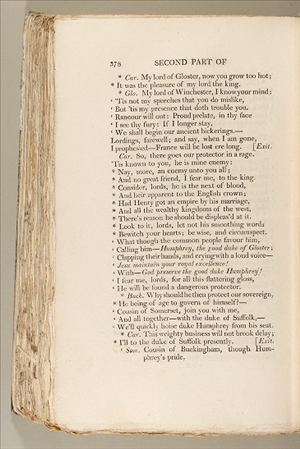 378 SECOND PART OF
* Car. My lord of Gloster, now you grow too hot;
* It was the pleasure of my lord the king.
* Glo. My lord of Winchester, I know your mind;
‘ 'Tis not my speeches that you do mislike,
‘ But 'tis my presence that doth trouble you.
‘ Rancour will out: Proud prelate, in thy face
‘ I see thy fury: If I longer stay,
‘ We shall begin our ancient bickerings.—
Lordings, farewell; and say, when I am gone,
I prophesied—France will be lost ere long. [Exit.
Car. So, there goes our protector in a rage.
'Tis known to you, he is mine enemy:
* Nay, more, an enemy unto you all;
* And no great friend, I fear me, to the king.
* Consider, lords, he is the next of blood,
* And heir apparent to the English crown;
* Had Henry got an empire by his marriage,
* And all the wealthy kingdoms of the west,
* There's reason he should be displeas'd at it.
* Look to it, lords, let not his smoothing words
* Bewitch your hearts; be wise, and circumspect.
‘ What though the common people favour him,
‘ Calling him—Humphrey, the good duke of Gloster;
‘ Clapping their hands, and crying with a loud voice—
‘ Jesu maintain your royal excellence!
‘ With—God preserve the good duke Humphrey!
‘ I fear me, lords, for all this flattering gloss,
‘ He will be found a dangerous protector.
* Buck. Why should he then protect our sovereign,
* He being of age to govern of himself?—
‘ Cousin of Somerset, join you with me,
‘ And all together—with the duke of Suffolk,—
‘ We'll quickly hoise duke Humphrey from his seat.
* Car. This weighty business will not brook delay;
* I'll to the duke of Suffolk presently. [Exit.
‘ Som. Cousin of Buckingham, though Hum-
phrey's pride,